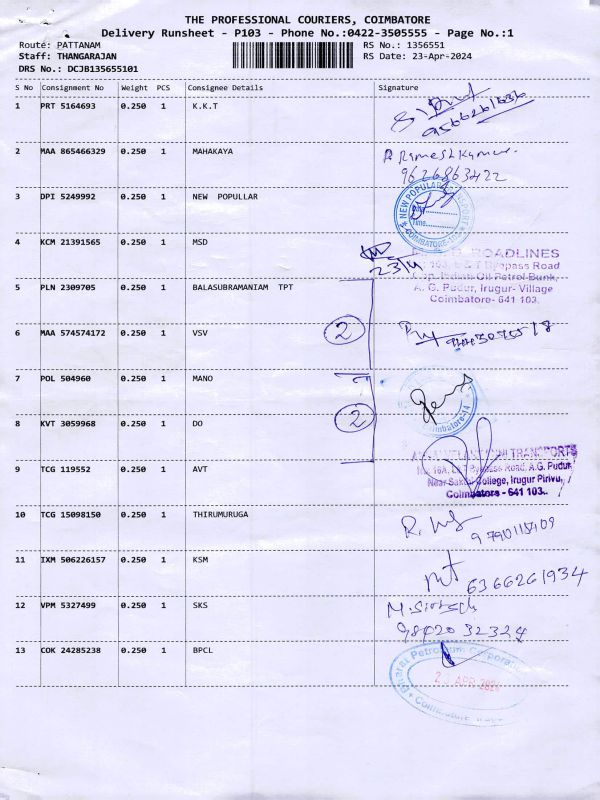 THE PROFESSIONAL COURIERS, COIMBATORE
Delivery Runsheet - P103 - Phone No.:0422-3505555 - Page No.:1
Route: PATTANAM RS No.: 1356551
Staff: THANGARAJAN RS Date: 23-Apr-2024
DRS No.: DCJB135655101
S No Consignment No Weight PCS Consignee Details Signature
1 PRT 5164693 0.250 1 K.K.T
9566261636
2 MAA 865466329 0.250 1 MAHAKAYA Rameshkumar.
9626863422
3 DPI 5249992 0.250 1 NEW POPULLAR
NEW POPULAR
COIMBATORE
4 KCM 21391565 0.250 1 MSD
23/4 ROADLINES
Bypass Road
Indian Oil Petrol Bunk,
5 PLN 2309705 0.250 1 BALASUBRAMANIAM TPT A. G. Pudur, Irugur- Village
Coimbatore- 641 103.
6 MAA 574574172 0.250 1 VSV 2
7 POL 504960 0.250 1 MANO
8 KVT 3059968 0.250 1 DO 2
Coimbatore-14
TRANSPORTS
9 TCG 119552 0.250 1 AVT Bypass Road, A.G. Pudur
College, Irugur Pirivu,
Coimbatore - 641 103..
10 TCG 15098150 0.250 1 THIRUMURUGA
11 IXM 506226157 0.250 1 KSM 6366261934
12 VPM 5327499 0.250 1 SKS
9842032324
13 COK 24285238 0.250 1 BPCL
Bharat Petroleum Corporation
APR 2024